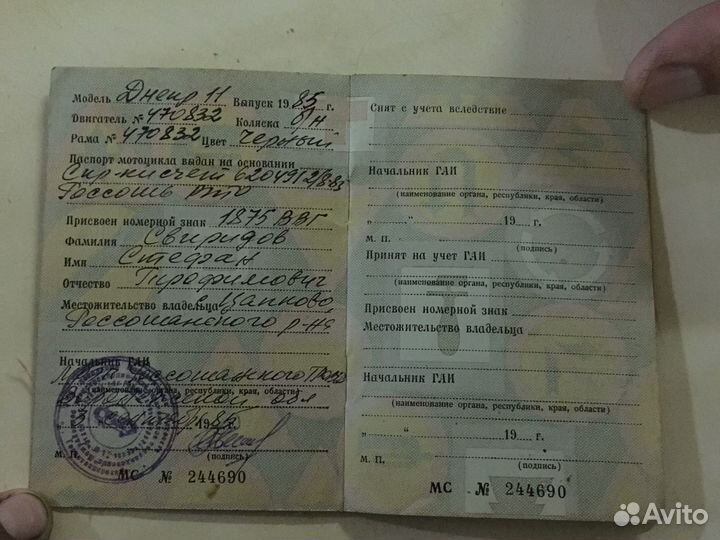 Модель Днепр 11 Выпуск 1985 г.
Двигатель № 470832 Коляска б/н
Рама № 470832 Цвет Черный
Паспорт мотоцикла выдан на основании
Спр-ки счет 620491
Россошь
Присвоен номерной знак 1875 ВВГ
Фамилия Свиридов
Имя Стефан
Отчество Трофимович
Местожительство владельца с. Цапково
Россошанского р-на
Начальник ГАИ
Россошанского
(наименование органа, республики, края, области)
19
М. П. (подпись)
МС № 244690
Снят с учета вследствие
Начальник ГАИ
(наименование органа, республики, края, области)
„ “ 19 г.
М. П. (подпись)
Принят на учет ГАИ
(наименование органа, республики, края, области)
Присвоен номерной знак
Местожительство владельца
Начальник ГАИ
(наименование органа, республики, края, области)
„ “ 19 г.
М. П. (подпись)
МС № 244690
Avito